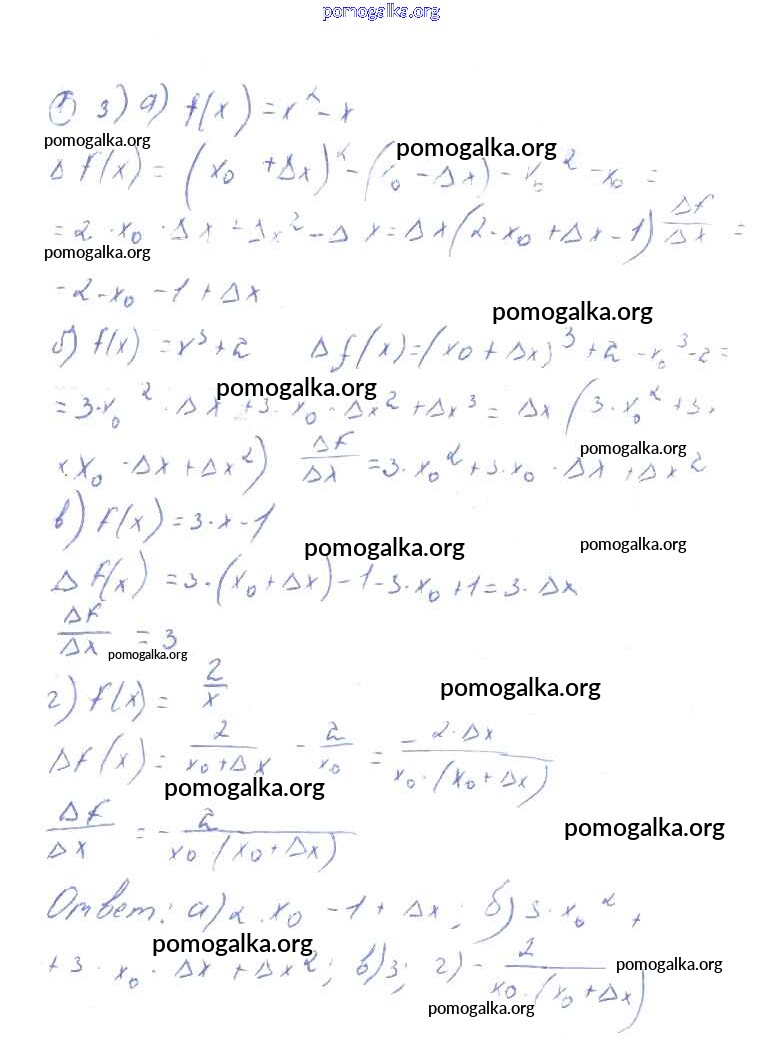 pomogalka.org
① 3) а) f(x) = x² - x
pomogalka.org pomogalka.org
Δ f(x) = (x₀ + Δx)² - (x₀ - Δx) - x₀² - x₀ =
= 2 · x₀ · Δx + Δx² - Δx = Δx (2 · x₀ + Δx - 1) Δf/Δx =
pomogalka.org
= 2 · x₀ - 1 + Δx
pomogalka.org
б) f(x) = x³ + 2 Δf(x) = (x₀ + Δx)³ + 2 - x₀³ - 2 =
pomogalka.org
= 3 · x₀² · Δx + 3 · x₀ · Δx² + Δx³ = Δx (3 · x₀² + 3 ·
pomogalka.org
· x₀ · Δx + Δx²) Δf/Δx = 3 · x₀² + 3 · x₀ · Δx + Δx²
в) f(x) = 3 · x - 1
pomogalka.org pomogalka.org
Δ f(x) = 3 · (x₀ + Δx) - 1 - 3 · x₀ + 1 = 3 · Δx
Δf/Δx = 3
pomogalka.org
г) f(x) = 2/x
pomogalka.org
Δf(x) = 2/(x₀ + Δx) - 2/x₀ = -2 · Δx/(x₀ · (x₀ + Δx))
pomogalka.org
Δf/Δx = - 2/(x₀ · (x₀ + Δx))
pomogalka.org
Ответ: а) 2 · x₀ - 1 + Δx; б) 3 · x₀² +
pomogalka.org
+ 3 · x₀ · Δx + Δx²; в) 3; г) - 2/(x₀ · (x₀ + Δx))
pomogalka.org
pomogalka.org